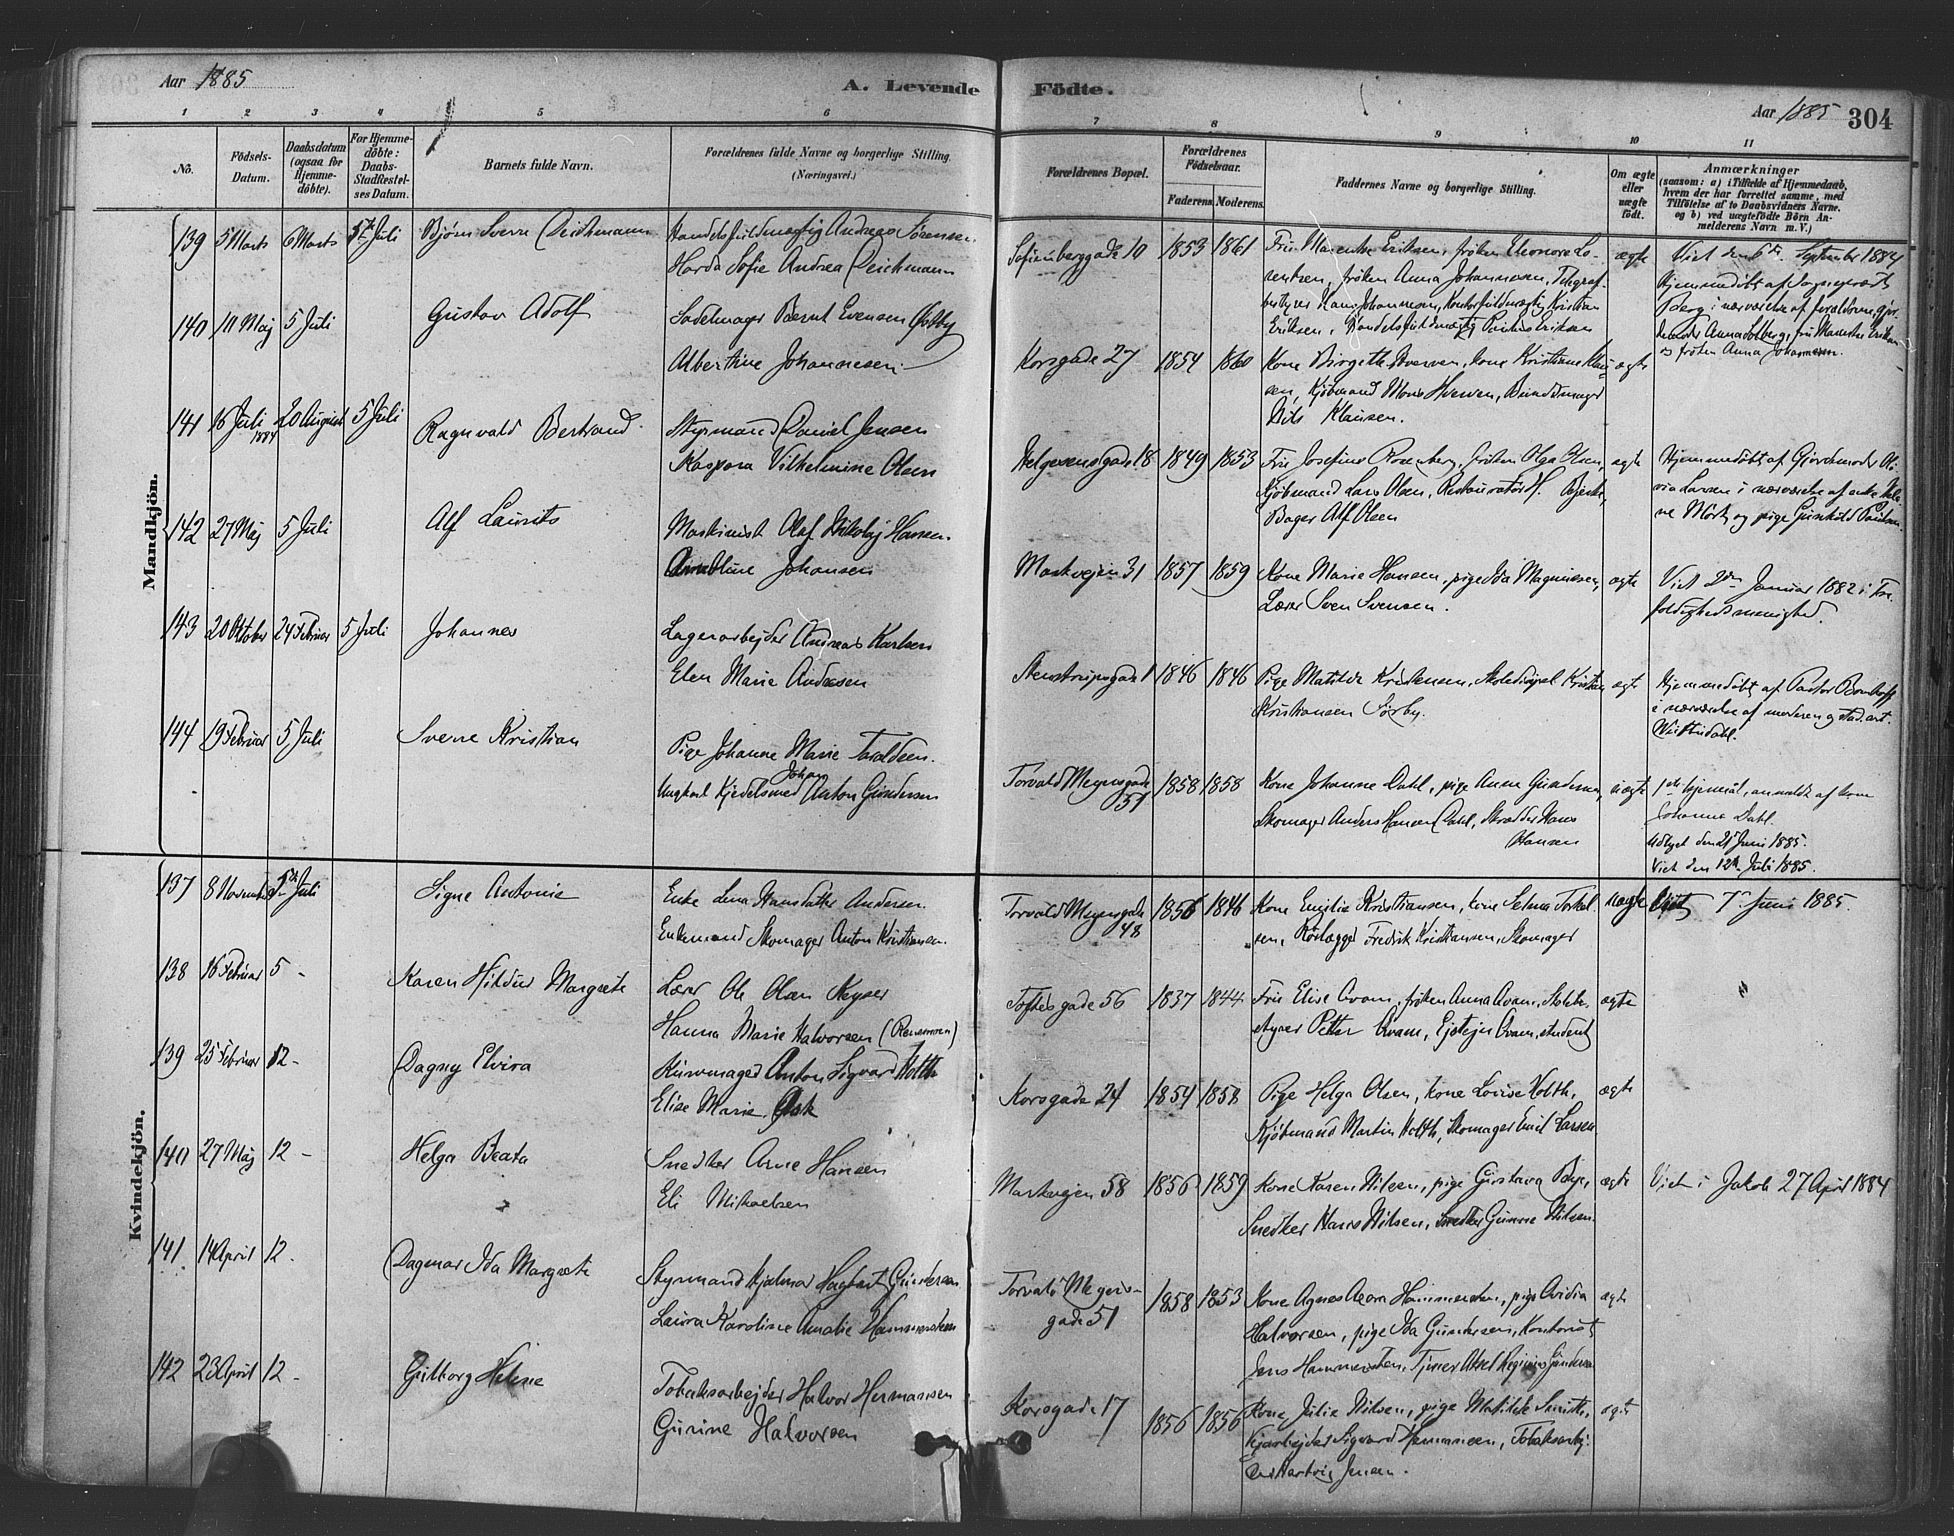 Aar 1885
A. Levende Födte.
Aar 1885 304
1 2 3 4 5 6 7 8 9 10 11
No.
Födsels-
Datum.
Daabsdatum
(ogsaa for
Hjemme-
döbte).
For Hjemme-
döbte:
Daabs-
Stadfæstel-
ses Datum.
Barnets fulde Navn.
Forældrenes fulde Navne og borgerlige Stilling.
(Næringsvei.)
Forældrenes Bopæl.
Forældrenes
Födselsaar.
Faderens Moderens.
Faddernes Navne og borgerlige Stilling.
Om ægte
eller
uægte
födt.
Anmærkninger
(saasom: a) i Tilfælde af Hjemmedaab,
hvem der har forrettet samme, med
Tilföielse af to Daabsvidners Navne,
og b) ved uægtefödte Börn An-
melderens Navn m.V.)
Mandkjön.
139 5 Marts 6 Marts 5te Juli Bjørn Sverre Deichmann Handelsfuldmægtig Andreas Sørensen
Horda Sofie Andrea Deichmann
Sofienberggade 10 1853 1861 Fru Marentse Eriksen, frøken Eleonora Lo-
rentsen, frøken Anna Johannesen, Telegraf-
bestyrer Hans Johannesen, Kontorfuldmægtig Kristian
Eriksen, Handelsfuldmægtig Eriksen
ægte Viet den 6te September 1884
Hjemmedøbt af Sogneprest
Berg i nærværelse af forældrene, gjor-
demoder Anna Solberg, fru Marentse Eriksen
og frøken Anna Johannesen.
140 10 Maj 5 Juli Gustav Adolf Sadelmager Bernt Evensen Østby
Albertine Johannesen
Korsgade 27 1854 1860 Kone Birgethe Hverven, kone Kristiane Klau-
sen, Kjøbmand Hverven, Bundtmager
Nils Klausen.
ægte
141 16 Juli 1884 20 August 5 Juli Ragnvald Bertrand Styrmand Daniel Jensen
Kaspara Vilhelmine Olsen
Helgesensgade 18 1849 1853 Fru Josefine Rosenberg, frøken Olga Olsen,
Kjøbmand Lars Olsen, Restauratør H. Bjerke,
Bager Alf Olsen
ægte Hjemmedøbt af Gjordemoder Oli-
via Larsen i nærværelse af enke
og pige Gunhild
142 27 Maj 5 Juli Alf Laurits Maskinist Olaf Nikolaj Hansen.
Oline Johansen
Markvejen 31 1857 1859 Kone Marie Hansen, pige Ida Magnussen,
Lærer Sven Svensen.
ægte Viet 2den Januar 1882 i Tre-
foldighedsmenighed.
143 20 Oktober 24 Februar 5 Juli Johannes Lagerarbejder Andreas Karlsen
Elen Marie Andersen
Stenstrupsgade 1 1846 1846 Pige Matilde Kristensen, Skolediscipel Kristian
Kristiansen Sørby.
ægte Hjemmedøbt af Pastor
i nærværelse af moderen og stud. art.
144 19 Februar 5 Juli Sverre Kristian Pige Johanne Marie Taraldsen.
Ungkarl Kjedelsmed Johan Anton Gundersen
Torvald Meyersgade
51 1858 1858 Kone Johanne Dahl, pige Anna Gundersen,
Skomager Anders Hansen Dahl, Skrædder Hans
Hansen
uægte 1ste hjemst, anmeldt af kone
Johanne Dahl.
Udtaget den 21 Juni 1885.
Viet den 12te Juli 1885.
Kvindekjön.
137 8 November 5te Juli Signe Antonie Enke Lena Hansdatter Andersen.
Enkemand Skomager Anton Kristiansen.
Torvald Meyersgade
48 1856 1846 Kone Emilie Kristiansen, kone Selma Torkel
sen, Rørlægger Fredrik Kristiansen, Skomager
uægte Viet 7de Juni 1885.
138 16 Februar 5 - Karen Hildur Margrete Lærer Ole Olsen Kyser
Hanna Marie Halvorsen
Toftes gade 56 1837 1844 Fru Elise Qvam, frøken Anna Qvam, Skole-
styrer Petter Qvam, Qvam, student
ægte
139 25 Februar 12 - Dagny Elvira Anton Sigvard Holth
Elise Marie Ask
Korsgade 24 1854 1858 Pige Helga Olsen, kone Louise Holth,
Kjøbmand Martin Holth, Skomager Emil Larsen
ægte
140 27 Maj 12 - Helga Beata Snedker Arne Hansen
Eli Mikaelsen
Markvejen 58 1856 1859 Kone Karen Nilsen, pige Gustava Bye,
Snedker Hans Nilsen, Snedker Gunne Nilsen.
ægte Viet i Jakob 27 April 1884
141 14 April 12 - Dagmar Ida Margrete Styrmand Hjalmar Hagbart Gundersen
Laura Karoline Amalie Hammersten
Torvald Meyers-
gade 51 1858 1853 Kone Agnes Hammersten, pige Ovidia
Halvorsen, pige Ida Gundersen, Kontorist
Jens Hammersten, Tjener Aksel Gundersen
ægte
142 23 April 12 - Gudborg Helene Tobaksarbejder Halvor Hermansen
Gurine Halvorsen
Korsgade 17 1856 1856 Kone Julie Nilsen, pige Matilde Smith,
Sigvard Hermansen, Tobaksarbej-
der Hartvig Jensen.
ægte